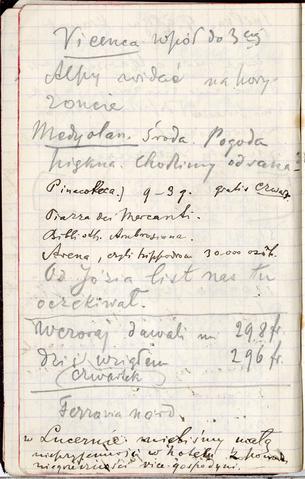 Vicenca wpół do 3ciej
Alpy widać na hory-
zoncie
Medyolan. Środa. Pogoda
piękna. Chodzimy od rana
Pinacoteca.) 9-3 g. gratis czwart
Piazza dei Mercanti.
Biblioth. Ambrosiana.
Arena, czyli hippodrom 30.000 osób.
Od Józia list nas tu
oczekiwał.
Wczoraj dawali mi 298 fr.
dziś wziąłem 296 fr.
(czwartek
Ferrovia nord.
w Lucernie mieliśmy małą
nieprzyjemność w hotelu z powodu
niegrzeczności vice-gospodyni.